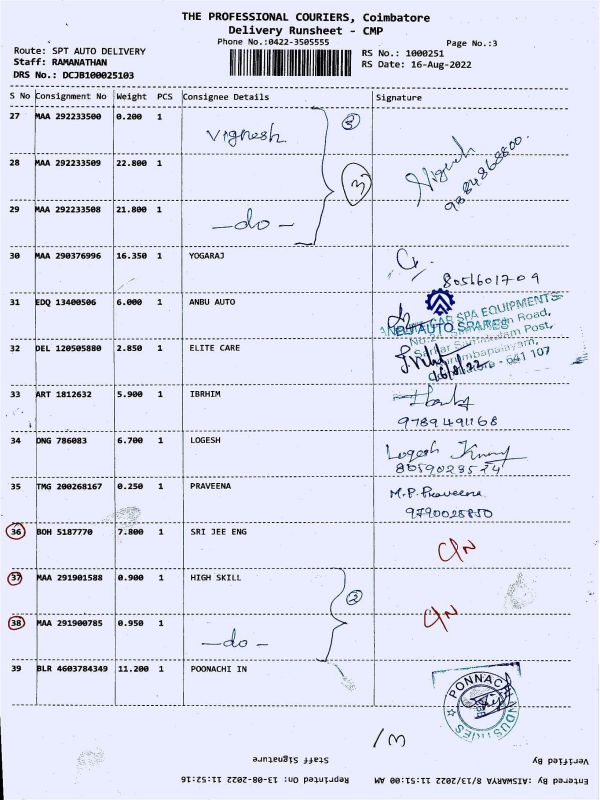 THE PROFESSIONAL COURIERS, Coimbatore
Delivery Runsheet - CMP
Phone No.:0422-3505555
Page No.:3
Route: SPT AUTO DELIVERY
Staff: RAMANATHAN
DRS No.: DCJB100025103
RS No.: 1000251
RS Date: 16-Aug-2022
S No Consignment No Weight PCS Consignee Details Signature
27 MAA 292233500 0.200 1 Vignesh
2
28 MAA 292233509 22.800 1
3
9884868800
29 MAA 292233508 21.800 1 -do-
30 MAA 290376996 16.350 1 YOGARAJ
8056601709
31 EDQ 13400506 6.000 1 ANBU AUTO
CAR SPA EQUIPMENTS
ANBU AUTO SPARES
Road,
Post,
641 107
32 DEL 120505880 2.850 1 ELITE CARE
16/8/22
33 ART 1812632 5.900 1 IBRHIM
9789491168
34 DNG 786083 6.700 1 LOGESH
Logesh
8659028524
35 TMG 200268167 0.250 1 PRAVEENA
M.P. Praveena
9790028850
36 BOH 5187770 7.800 1 SRI JEE ENG
C/N
37 MAA 291901588 0.900 1 HIGH SKILL
2
38 MAA 291900785 0.950 1 -do-
C/N
39 BLR 4603784349 11.200 1 POONACHI IN
PONNACHI INDUSTRIES
Verified By
Staff Signature
Entered By :AISWARYA 8/13/2022 11:51:00 AM
Reprinted On: 13-08-2022 11:52:16